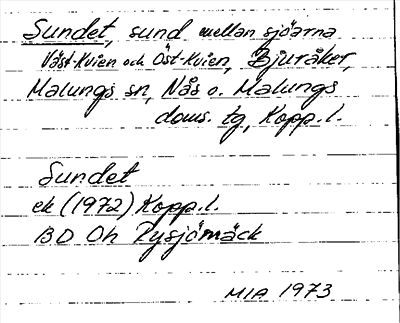 Sundet, sund mellan sjöarna
Väst-Kvien och Öst-Kvien, Bjuråker,
Malungs sn, Nås o. Malungs
doms. tg, Kopp.l.
Sundet
ek (1972) Kopp.l.
BD Oh Rysjömäck
MIA 1973